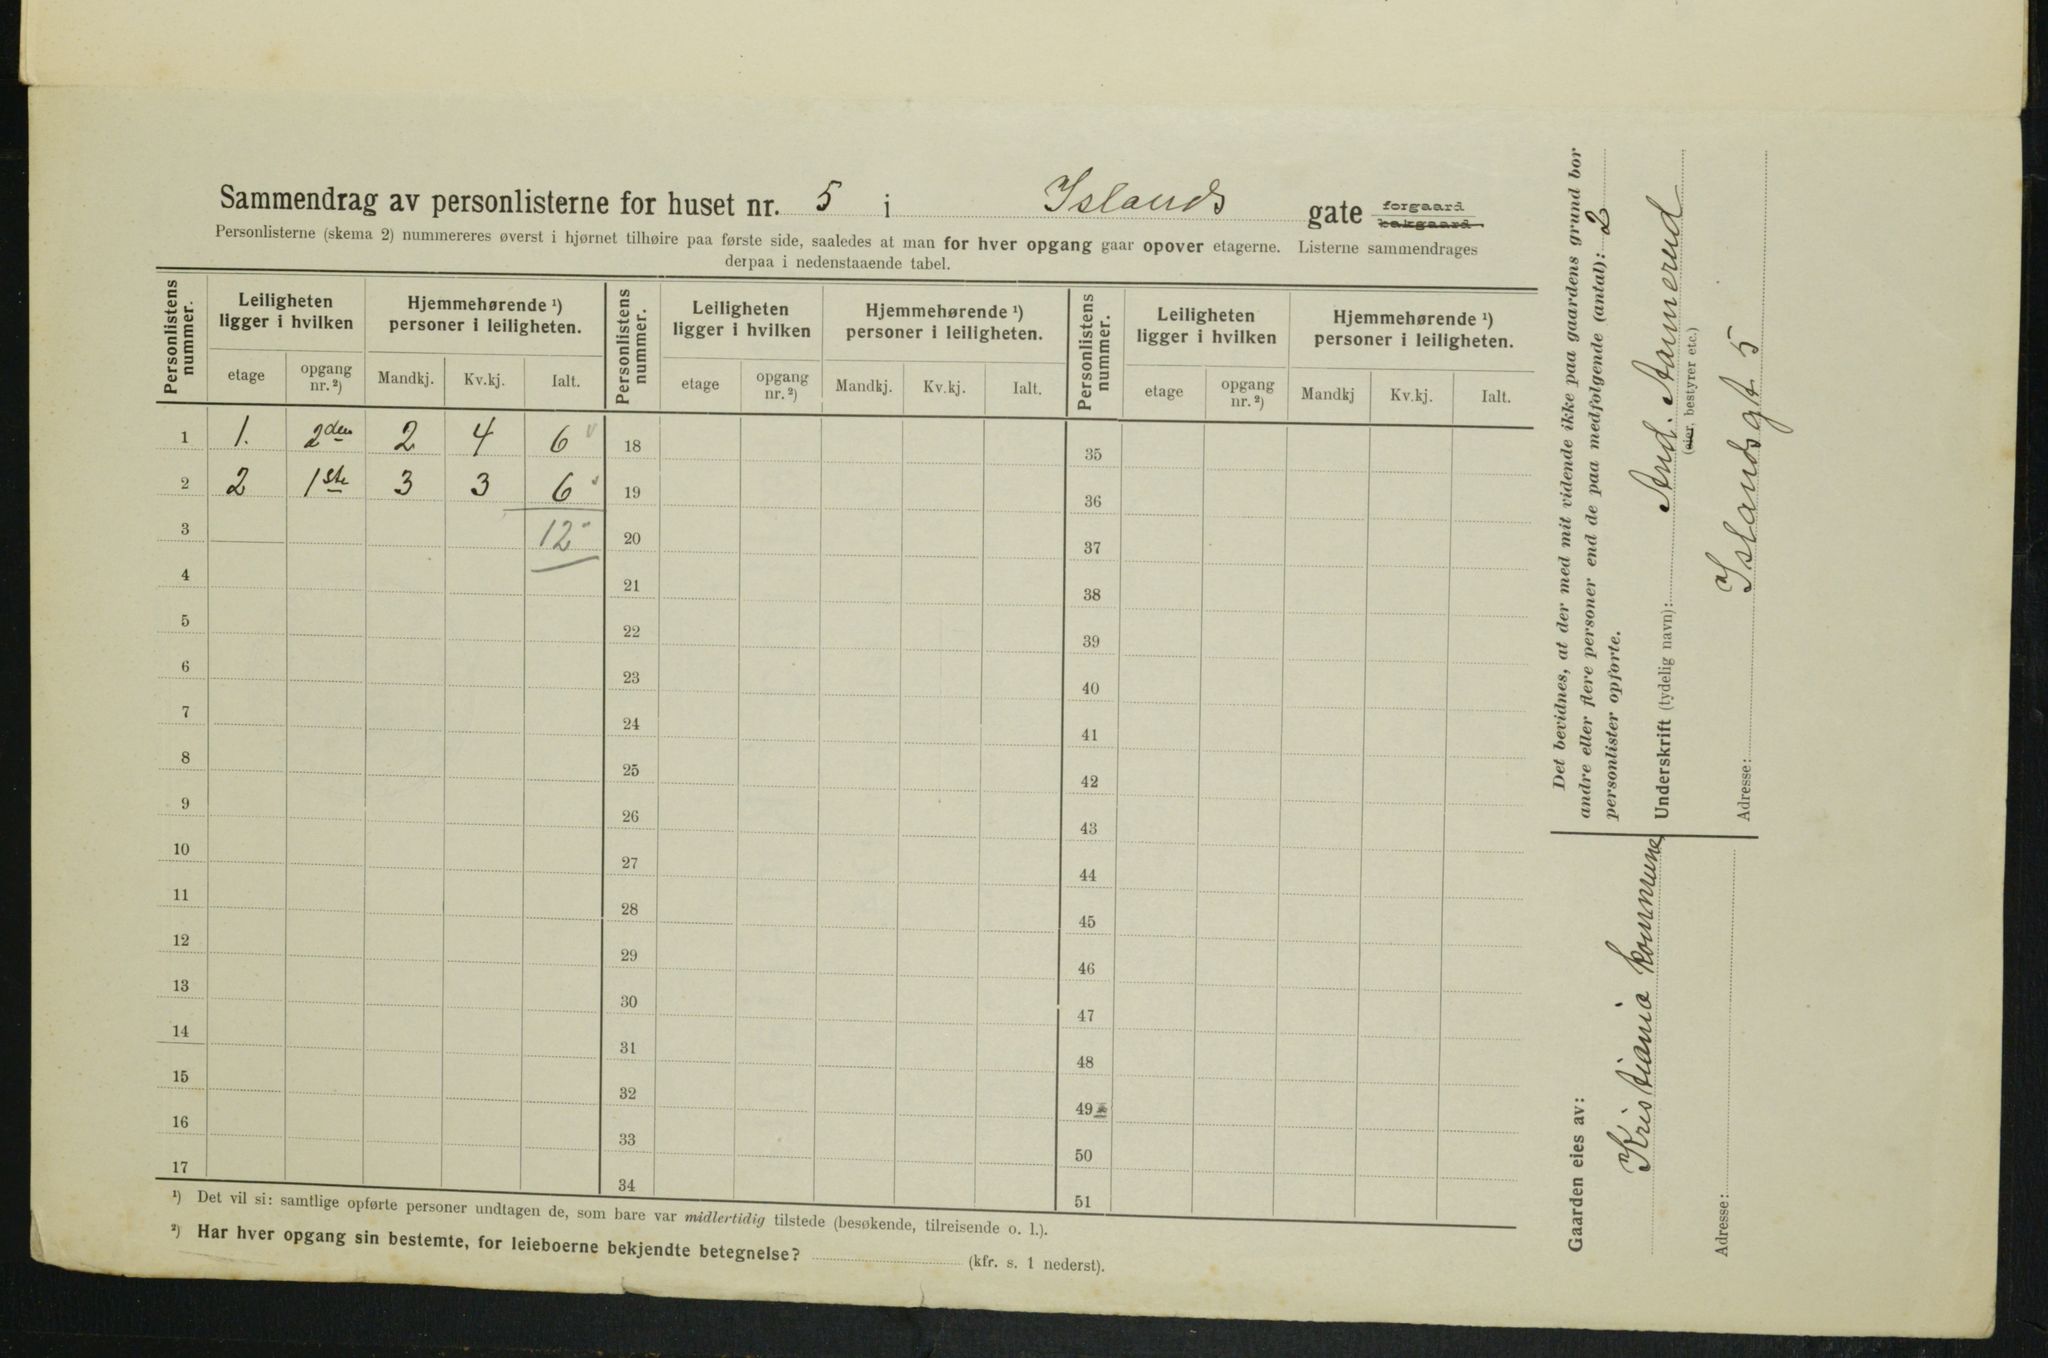 Sammendrag av personlisterne for huset nr. 5 i Islands gate forgaard
bakgaard
Personlisterne (skema 2) nummereres øverst i hjørnet tilhøire paa første side, saaledes at man for hver opgang gaar opover etagerne. Listerne sammendrages
derpaa i nedenstaaende tabel.
Personlistens nummer. Leiligheten ligger i hvilken Hjemmehørende ¹) personer i leiligheten. Personlistens nummer. Leiligheten ligger i hvilken Hjemmehørende ¹) personer i leiligheten. Personlistens nummer. Leiligheten ligger i hvilken Hjemmehørende ¹) personer i leiligheten.
etage opgang nr. ²) Mandkj. Kv.kj. Ialt. etage opgang nr. ²) Mandkj. Kv.kj. Ialt. etage opgang nr. ²) Mandkj Kv.kj. Ialt.
1 1. 2den 2 4 6 18 35
2 2 1ste 3 3 6 19 36
3 12 20 37
4 21 38
5 22 39
6 23 40
7 24 41
8 25 42
9 26 43
10 27 44
11 28 45
12 29 46
13 30 47
14 31 48
15 32 49
16 33 50
17 34 51
¹) Det vil si: samtlige opførte personer undtagen de, som bare var midlertidig tilstede (besøkende, tilreisende o. l.).
²) Har hver opgang sin bestemte, for leieboerne bekjendte betegnelse? (kfr. s. 1 nederst).
Det bevidnes, at der med mit vidende ikke paa gaardens grund bor
andre eller flere personer end de paa medfølgende (antal): 2
personlister opførte.
Underskrift (tydelig navn): And. Aamerud
(eier, bestyrer etc.)
Adresse: Islandsgt 5
Gaarden eies av:
Kristiania kommune
Adresse: